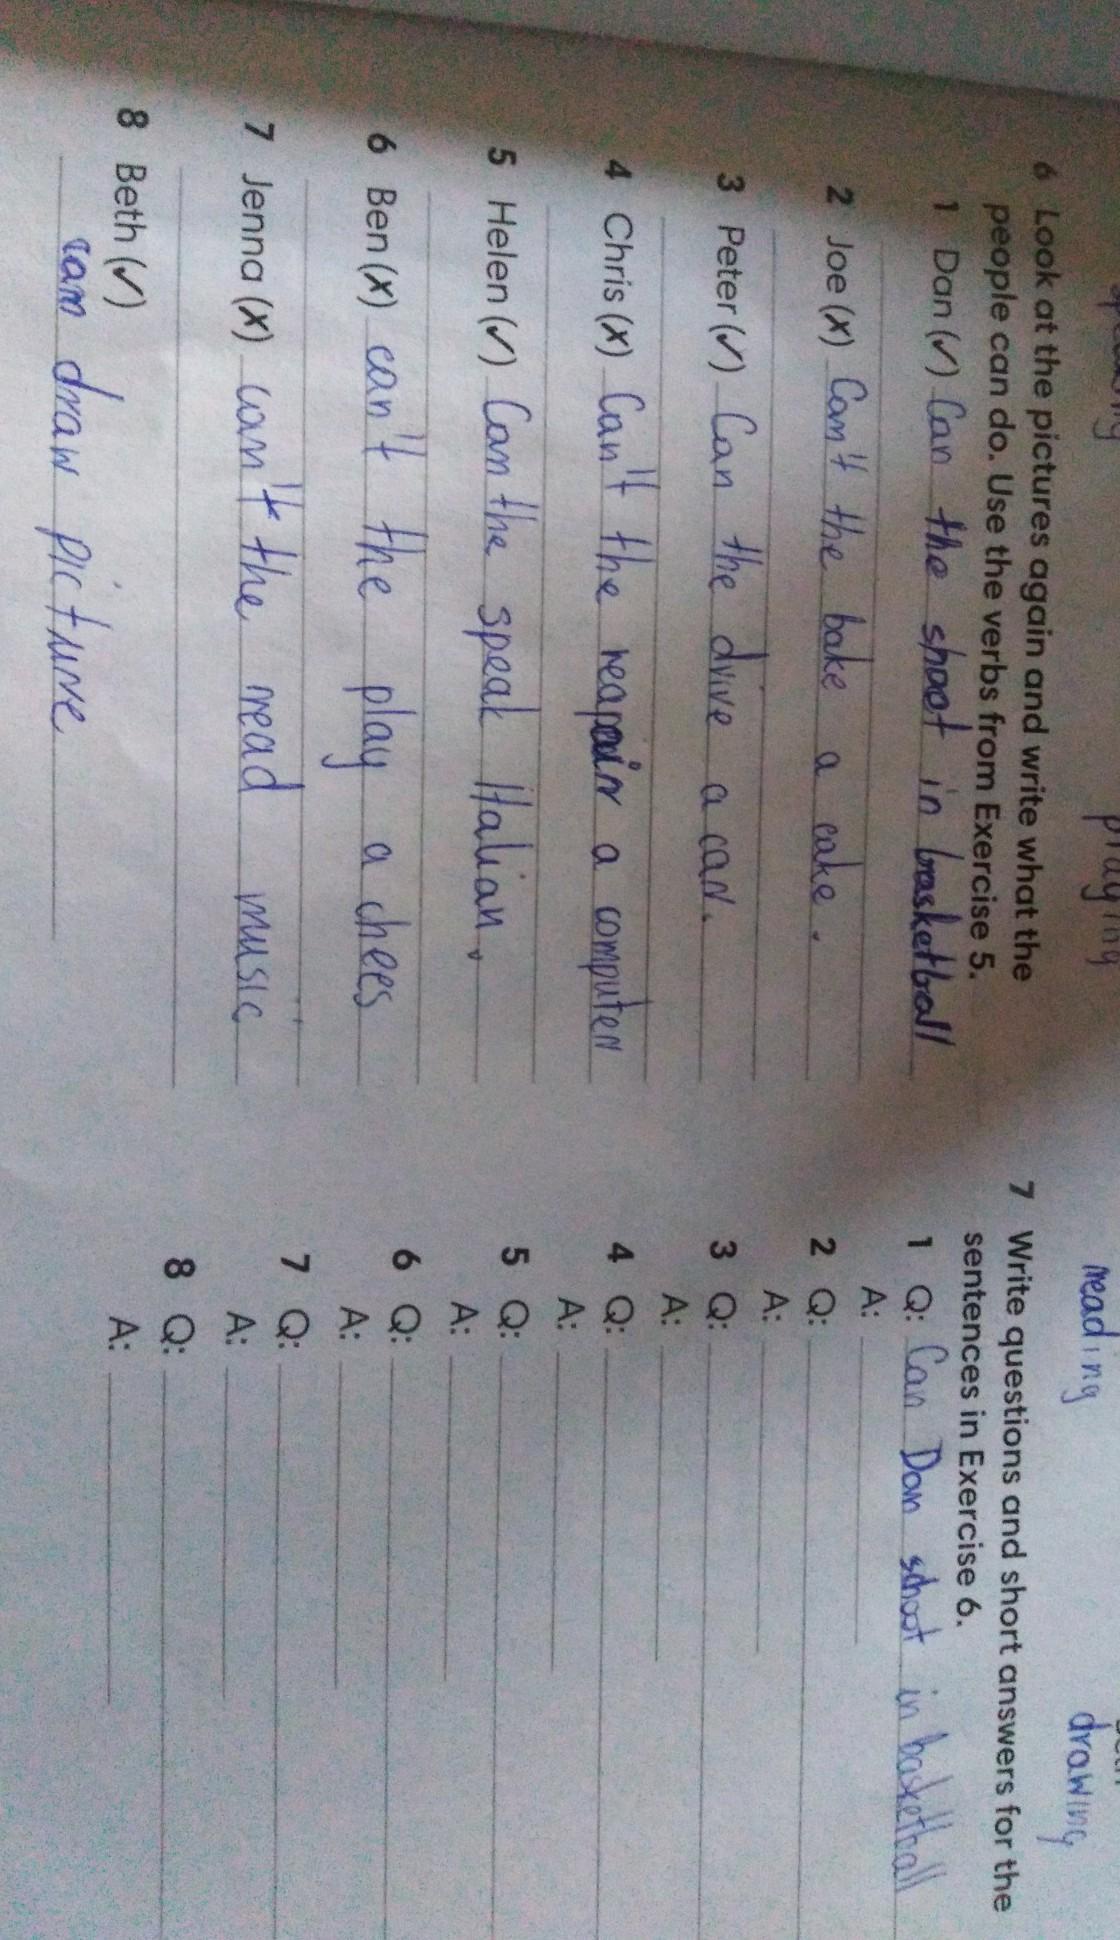 playing
reading
drawing
6 Look at the pictures again and write what the
people can do. Use the verbs from Exercise 5.
1 Dan (✓) Can the shoot in basketball
2 Joe (✗) Can't the bake a cake.
3 Peter (✓) Can the drive a car.
4 Chris (✗) Can't the reapair a computer
5 Helen (✓) Can the speak Italian.
6 Ben (✗) can't the play a chees
7 Jenna (✗) can't the read music
8 Beth (✓)
can draw picture
7 Write questions and short answers for the
sentences in Exercise 6.
1 Q: Can Dan schoot in basketball
A:
2 Q:
A:
3 Q:
A:
4 Q:
A:
5 Q:
A:
6 Q:
A:
7 Q:
A:
8 Q:
A: